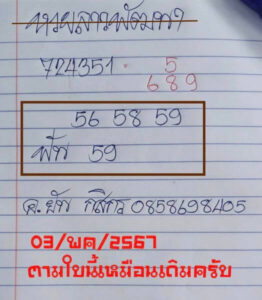 หวยลาวพัฒนา
724351 - 5
689
56 58 59
ฟัน 59
0858698405
03/พค/2567
ตามใบนี้เหมือนเดิมครับ